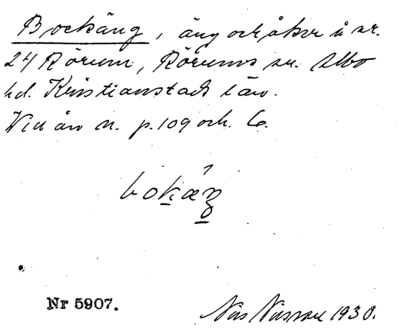 Bockäng, äng och åker å nr.
24 Rörum, Rörums sn. Albo
hd. Kristianstads län.
Vid ån n. p. 109 och 6.
bokæŋ
Nr 5907.
Nils 1930.